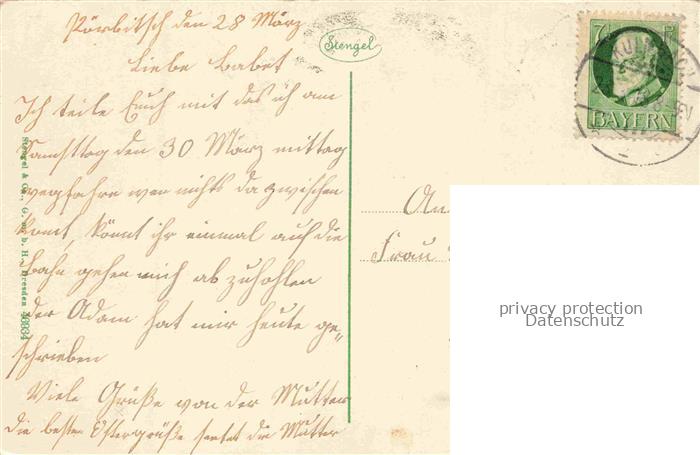 Pörbitsch den 28 März
Liebe Babet
Ich teile Euch mit das ich am
Samsttag den 30 März mittag
wegfahre wen nichts dazwischen
komt, könnt ihr einmal auf die
Bahn gehen mich ab zuhohlen
der Adam hat mir heute ge=
schrieben
Viele Grüße von der Mutter
die besten Ostergrüße sendet die Mutter
Stengel
Stengel & Co., G. m. b. H., Dresden 46934
7 P
BAYERN
An
Frau
privacy protection
Datenschutz